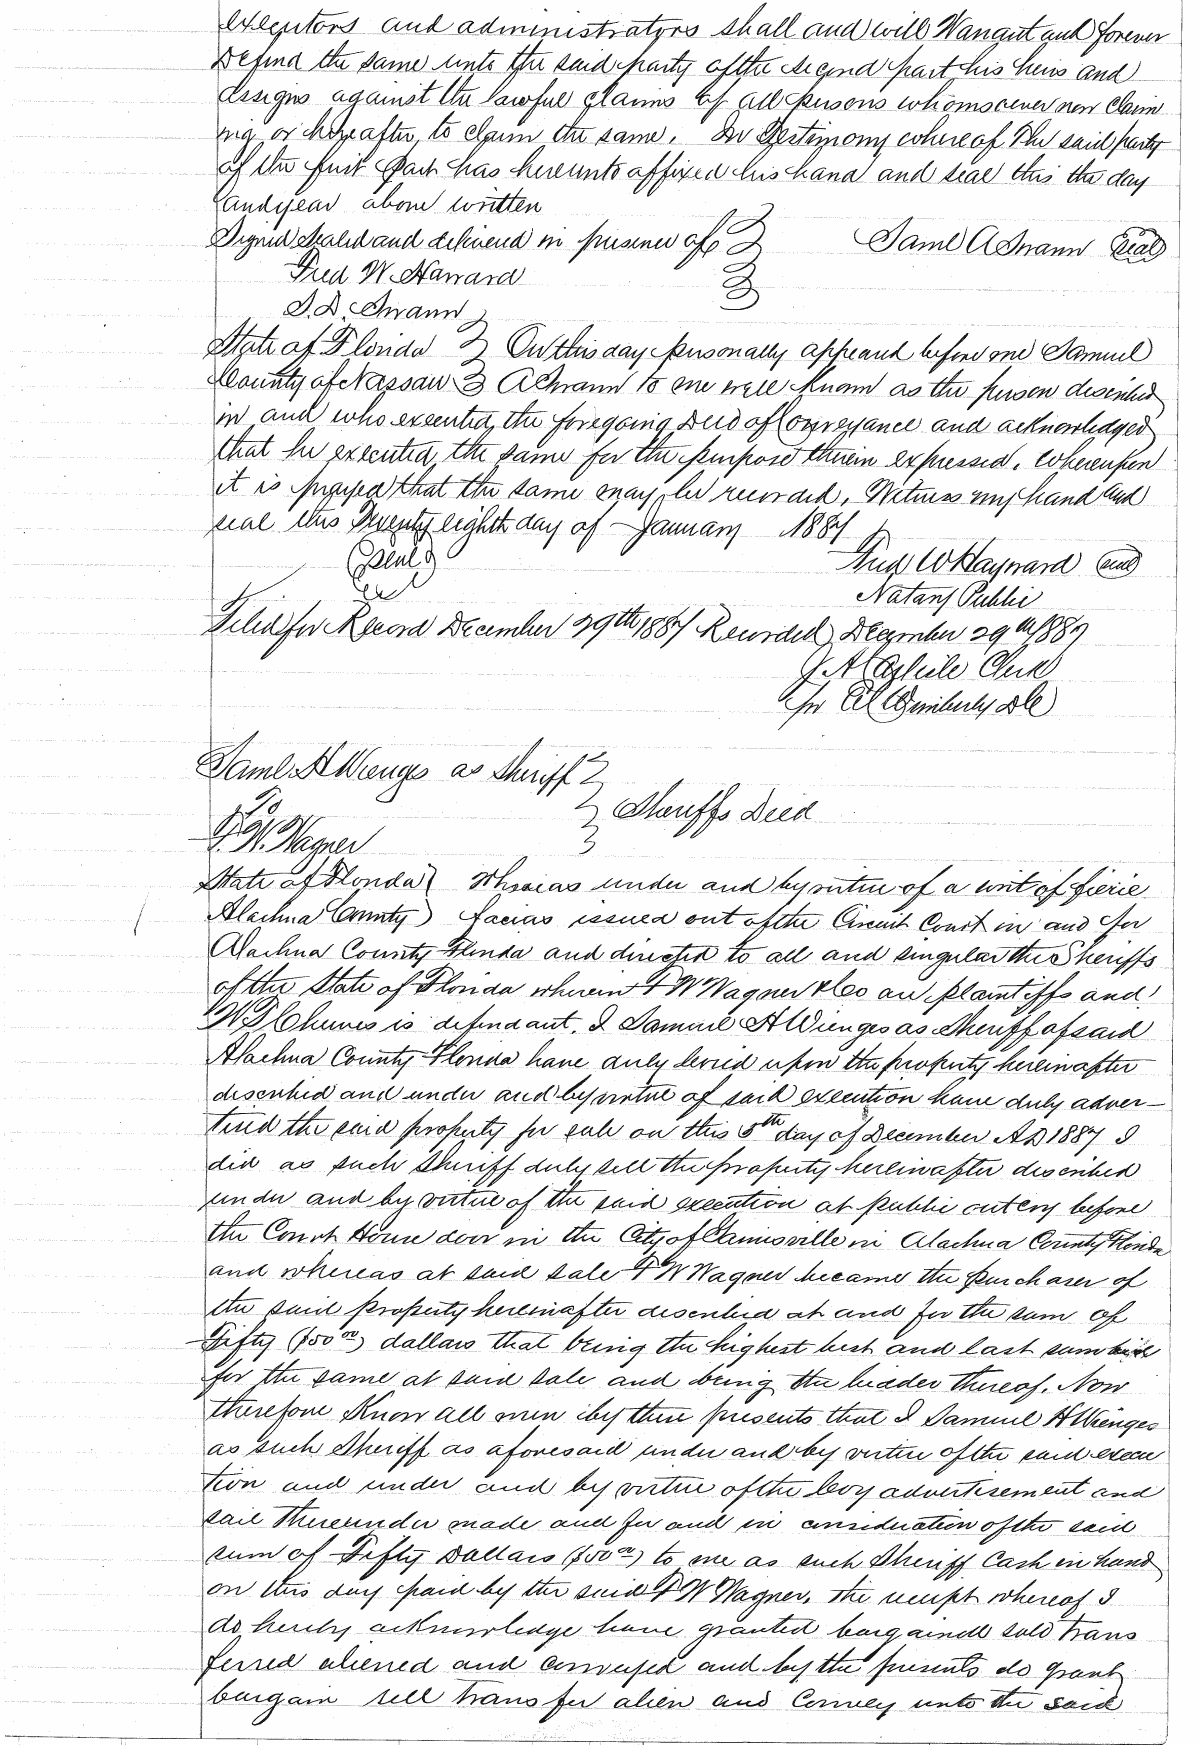 executors and administrators shall and will Warrant and forever
Defend the same unto the said party of the second part his heirs and
assigns against the lawful claims of all persons whomsoever now claim
nig or hereafter, to claim the same. In Testimony whereof The said party
of the first Part has hereunto affixed his hand and seal this the day
and year above written
Signed Sealed and delivered in presence of Saml A Swann Seal
Fred W. Hayward
S. D. Swann
State of Florida On this day personally appeared before me Samuel
County of Nassau A Swann to me well known as the person described
in and who executed, the foregoing Deed of Conveyance and acknowledged
that he executed, the same for the purpose therein expressed. Whereupon
it is prayed that the same may be recorded. Witness my hand and
seal this Twenty eighth day of January 1887
Seal Fred W Hayward Seal
Notary Public
Filed for Record December 29th 1887 Recorded, December 29th 1887
J. A. Clerk
pr Wimberly DC
Saml. H Wienges as Sheriff
To Sheriffs Deed
F. W. Wagner
State of Florida Whereas under and by virtue of a writ of fierie
Alachua County facias issued out of the Circuit Court in and for
Alachua County Florida and directed to all and singular the Sheriffs
of the State of Florida wherein F W Wagner & Co are plaintiffs and
W P Cheeves is defendant. I Samuel H Wienges as Sheriff of said
Alachua County Florida have duly levied upon the property hereinafter
described and under and by virtue of said execution have duly adver-
tised the said property for sale on this 5th day of December AD 1887 I
did as such Sheriff duly sell the property hereinafter described
under and by virtue of the said execution at public outcry before
the Court House door in the City of Gainesville in Alachua County Florida
and whereas at said sale F W Wagner became the purchaser of
the said property hereinafter described at and for the sum of
Fifty ($50 00) dollars that being the highest best and last sum
for the same at said sale and being the bidder thereof. Now
therefore Know all men by these presents that I Samuel H Wienges
as such Sheriff as aforesaid under and by virtue of the said execu
tion and under and by virtue of the levy advertisement and
sail thereunder made and for and in consideration of the said
sum of Fifty Dollars ($50 00) to me as such Sheriff Cash in hand
on this day paid by the said F W Wagner, the receipt whereof I
do hereby acknowledge have granted bargained sold trans
ferred aliened and conveyed and by the presents do grant
bargain sell transfer alien and Convey unto the said